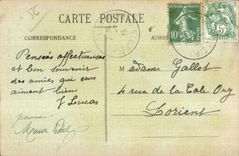 CARTE POSTALE
CORRESPONDANCE
ADRESSE
Pensées affectueuses
et bon souvenir
des amies qui vous
aiment bien
J Lucas
Madame Gallot
4 rue de la Cale Ory
Lorient
10
5